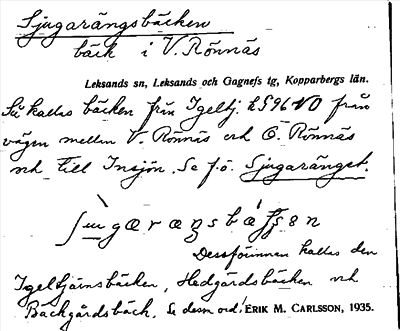 Sjugarängsbäcken
bäck i V. Rönnäs
Leksands sn, Leksands och Gagnefs tg, Kopparbergs län.
Så kallas bäcken från Igeltj. LS96 VO från
vägen mellan V. Rönnäs och Ö. Rönnäs
och till Insjön. Se f.ö. Sjugaränget.
Dessförinnan kallas den
Igeltjärnsbäcken, Hedgårdsbäcken och
Backgårdsbäck. Se dessa ord! ERIK M. CARLSSON, 1935.